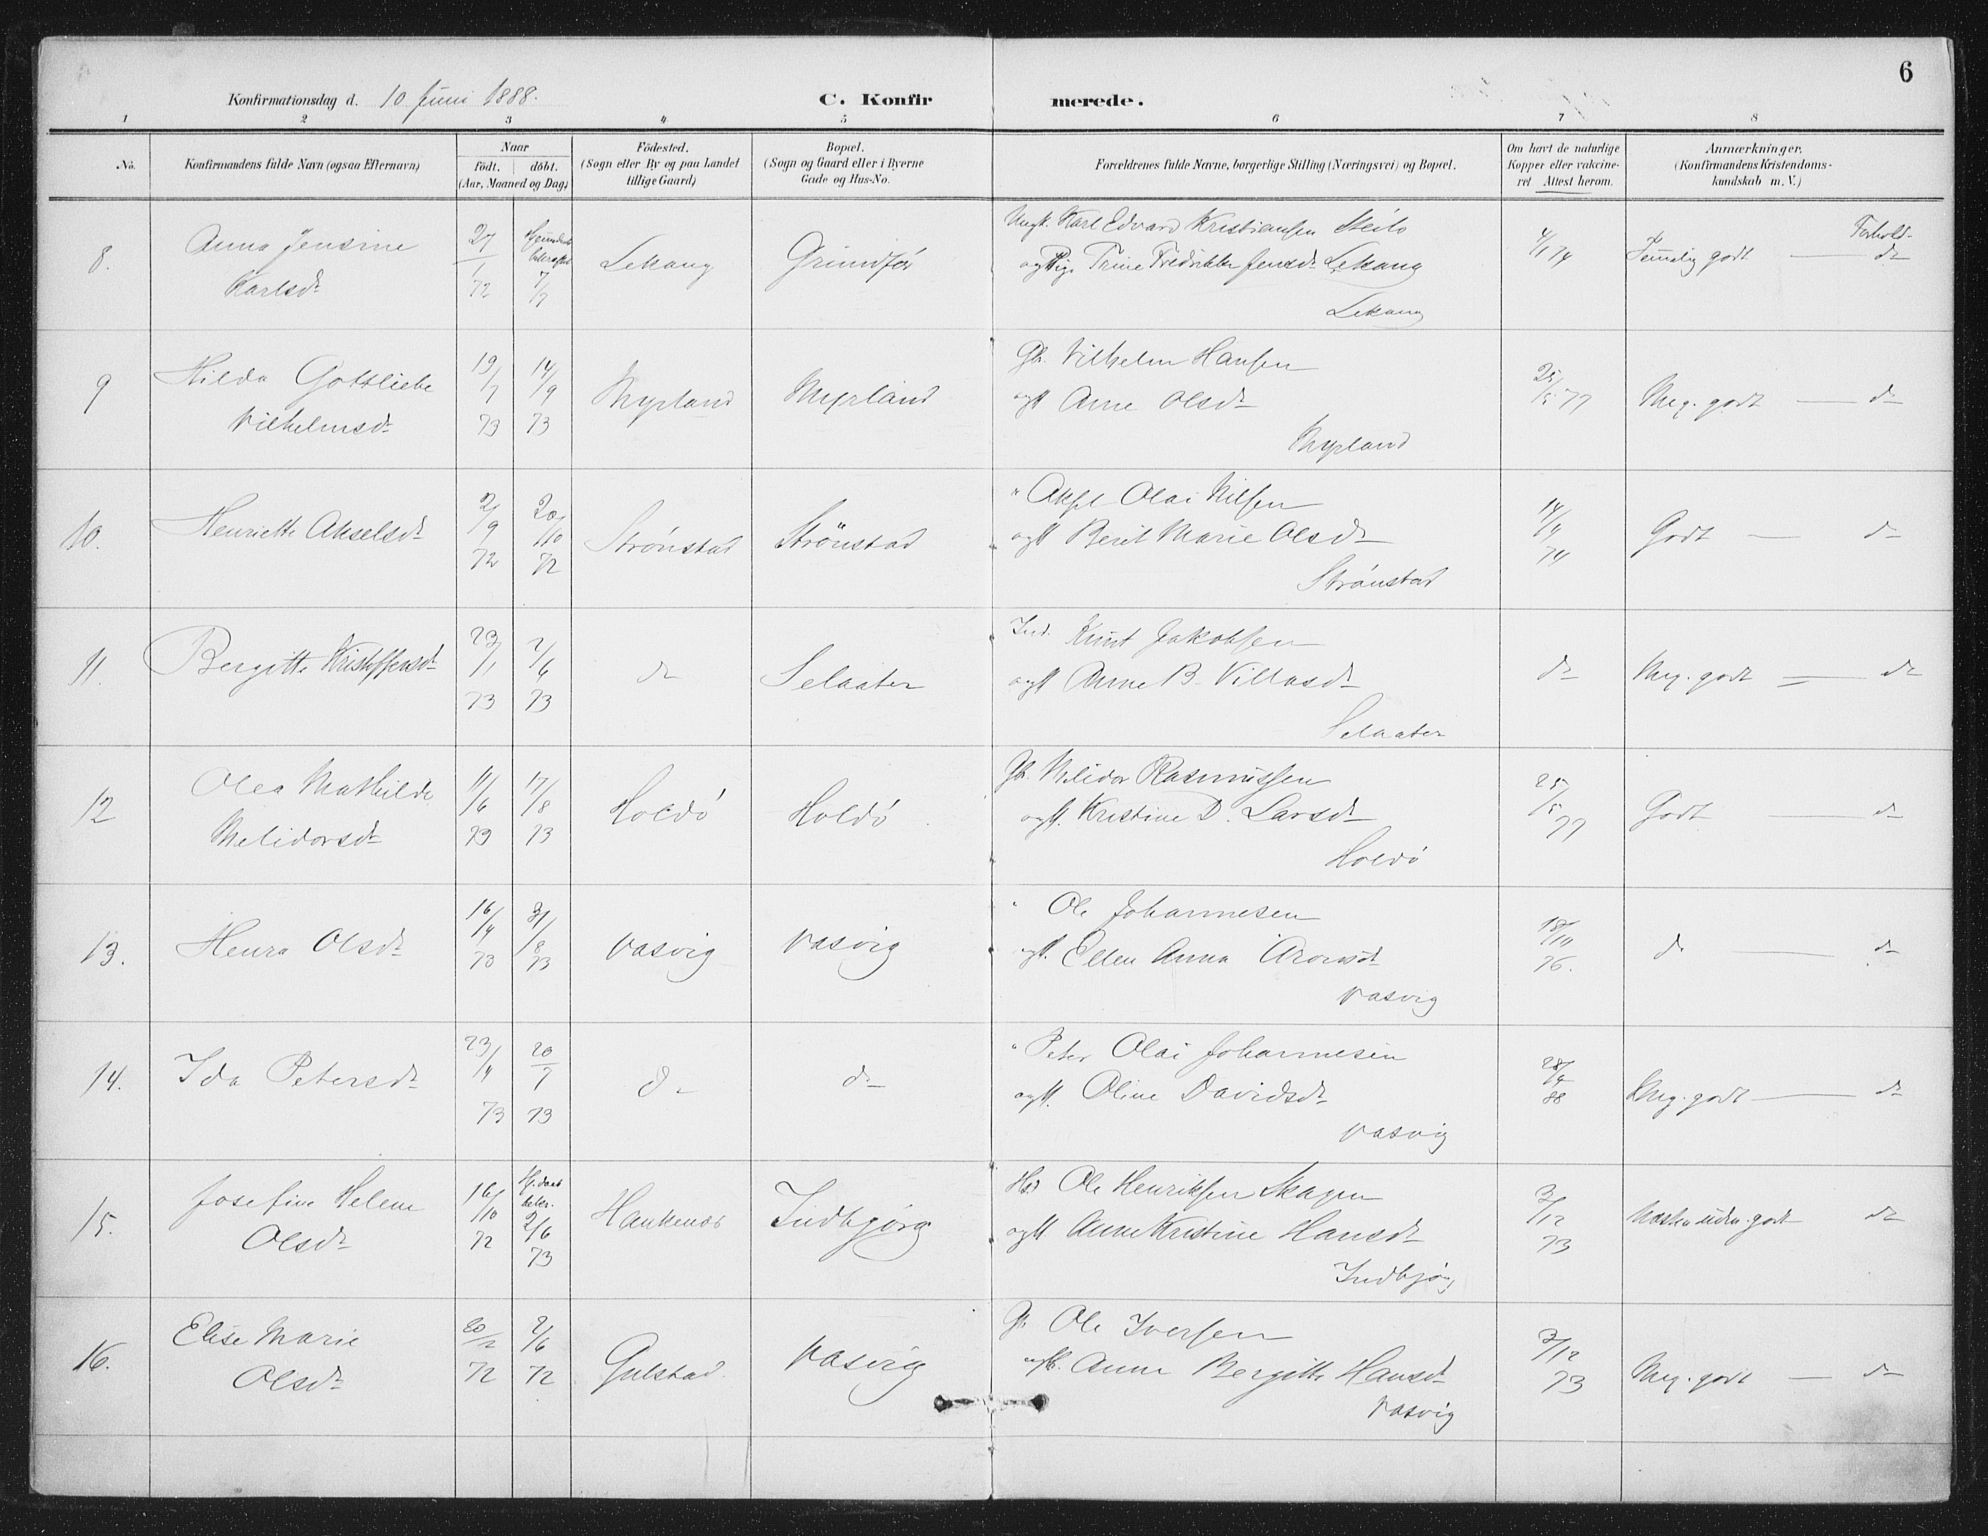 6
Konfirmationsdag d. 10 Juni 1888.
C. Konfir merede.
1 2 3 4 5 6 7 8
No.
Konfirmandens fulde Navn (ogsaa Efternavn)
Naar
født. døbt.
(Aar, Maaned og Dag)
Fødested.
(Sogn eller By og paa Landet
tillige Gaard)
Bopæl.
(Sogn og Gaard eller i Byerne
Gade og Hus-No.
Forældrenes fulde Navne, borgerlige Stilling (Næringsvei) og Bopæl.
Om havt de naturlige
Kopper eller vakcine-
ret Attest herom.
Anmærkninger.
(Konfirmandens Kristendoms-
kundskab m. V.)
8. Anna Jensine
Karlsdt
27/1 72
7/7
Lekang
Grundfør
Ungk. Karl Edvard Kristiansen Steilo
og Pige Trine Fredrikke Jensdt Lekang
Lekang
Temelig godt
Forhold-
dt
9 Hilda Gottliebe
Vilhelmsdt
19/7 73
14/9 73
Myrland
Myrland
Gb. Vilhelm Hansen
og H Anne Olsdt
Myrland
25/5 77
Meg. godt — dt
10. Henriette Akselsdt
2/9 72
20/10 72
Strønstad
Strönstad
" Aksel Olai Nilsen
og H Berit Marie Olsdt
Strønstad
14/9 74
Godt — dt
11. Bergitte Kristoffersdt
23/1 73
2/6 73
dt
Selaater
Ind. Knut Jakobsen
og H Anne B. Villasdt
Selaater
dt
Meg. godt — dt
12 Olea Mathilde
Melidorsdt
11/6 73
17/8 73
Holdö
Holdö
Gb. Melidor Rasmussen
og H. Kristine D. Larsdt
Holdö
25/5 77
Godt — dt
13. Henra Olsdt
16/4 73
31/8 73
Vasvig
Vasvig
" Ole Johannesen
og H. Ellen Anna Aronsdt
Vasvig
18/10 76.
dt — dt
14. Ida Petersdt
23/4 73
20/7 73
dt
dt
" Peter Olai Johannesen
og H. Oline Davidsdt
Vasvig
28/4 88
Meg. godt — dt
15. Josefine Helene
Olsdt
16/10 72
2/6 73
Haukenes
Indbjørg
Hd Ole Henriksen Skagen
og H Anne Kristine Hansdt
Indbjörg
3/12 73
Mæsten uden. godt dt
16. Elise Marie
Olsdt
20/2 72
2/6 72
Gulstad
Vasvig
G. Ole Iversen
og H. Anne Bergitte Hansdt
Vasvig
3/12 73
Meg. godt — dt